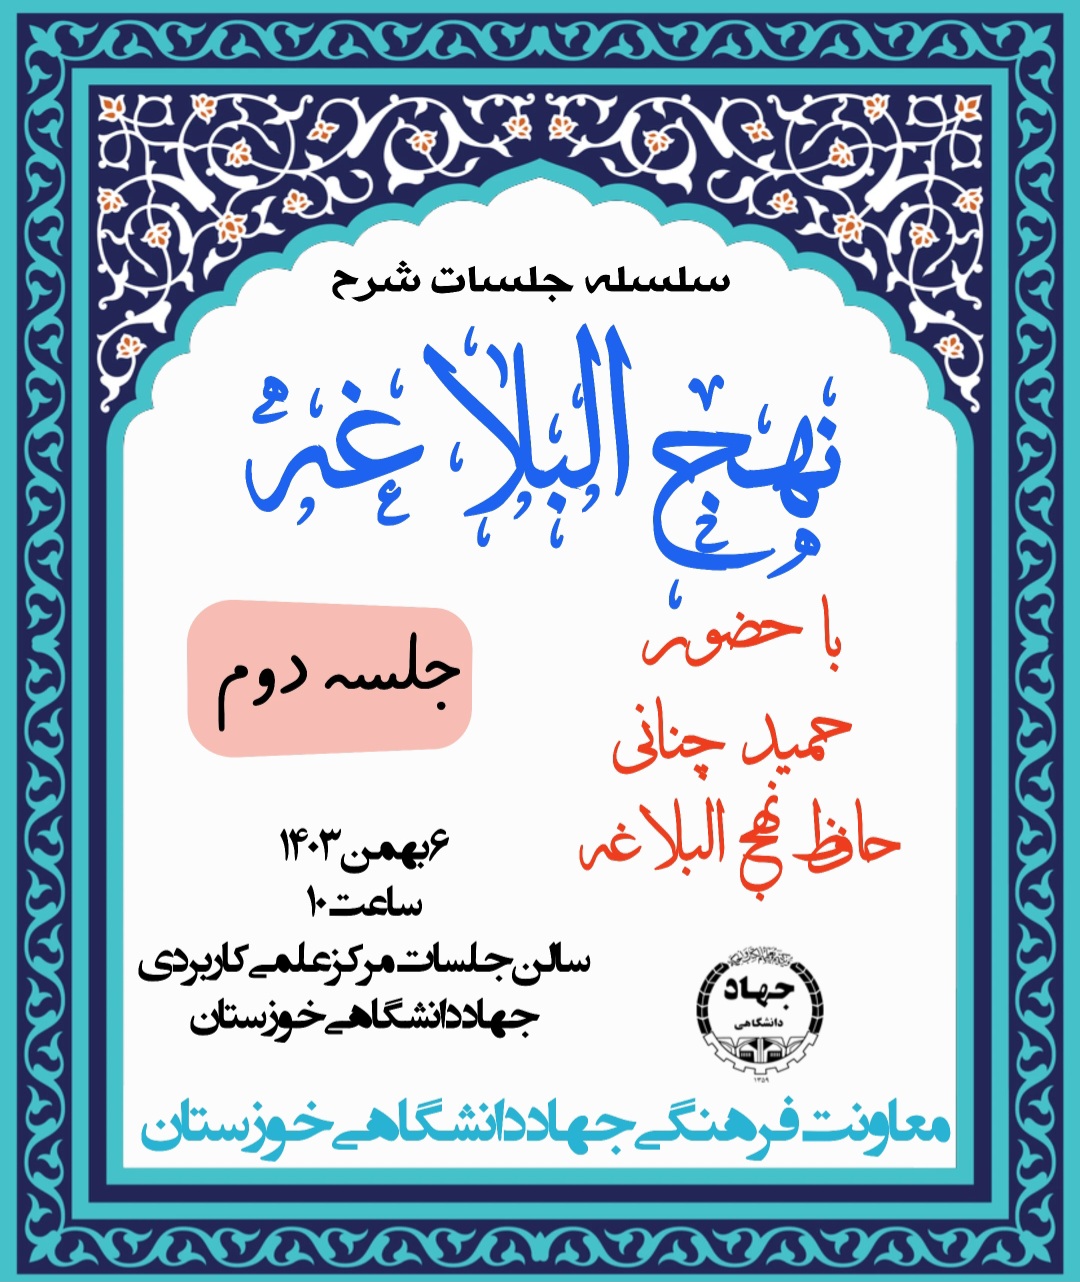 سلسله جلسات شرح
نهج البلاغه
با حضور
حمید چنانی
حافظ نهج البلاغه
جلسه دوم
۶بهمن۱۴۰۳
ساعت۱۰
سالن جلسات مرکز علمی کاربردی
جهاددانشگاهی خوزستان
جهاد
دانشگاهی
۱۳۵۹
معاونت فرهنگی جهاددانشگاهی خوزستان